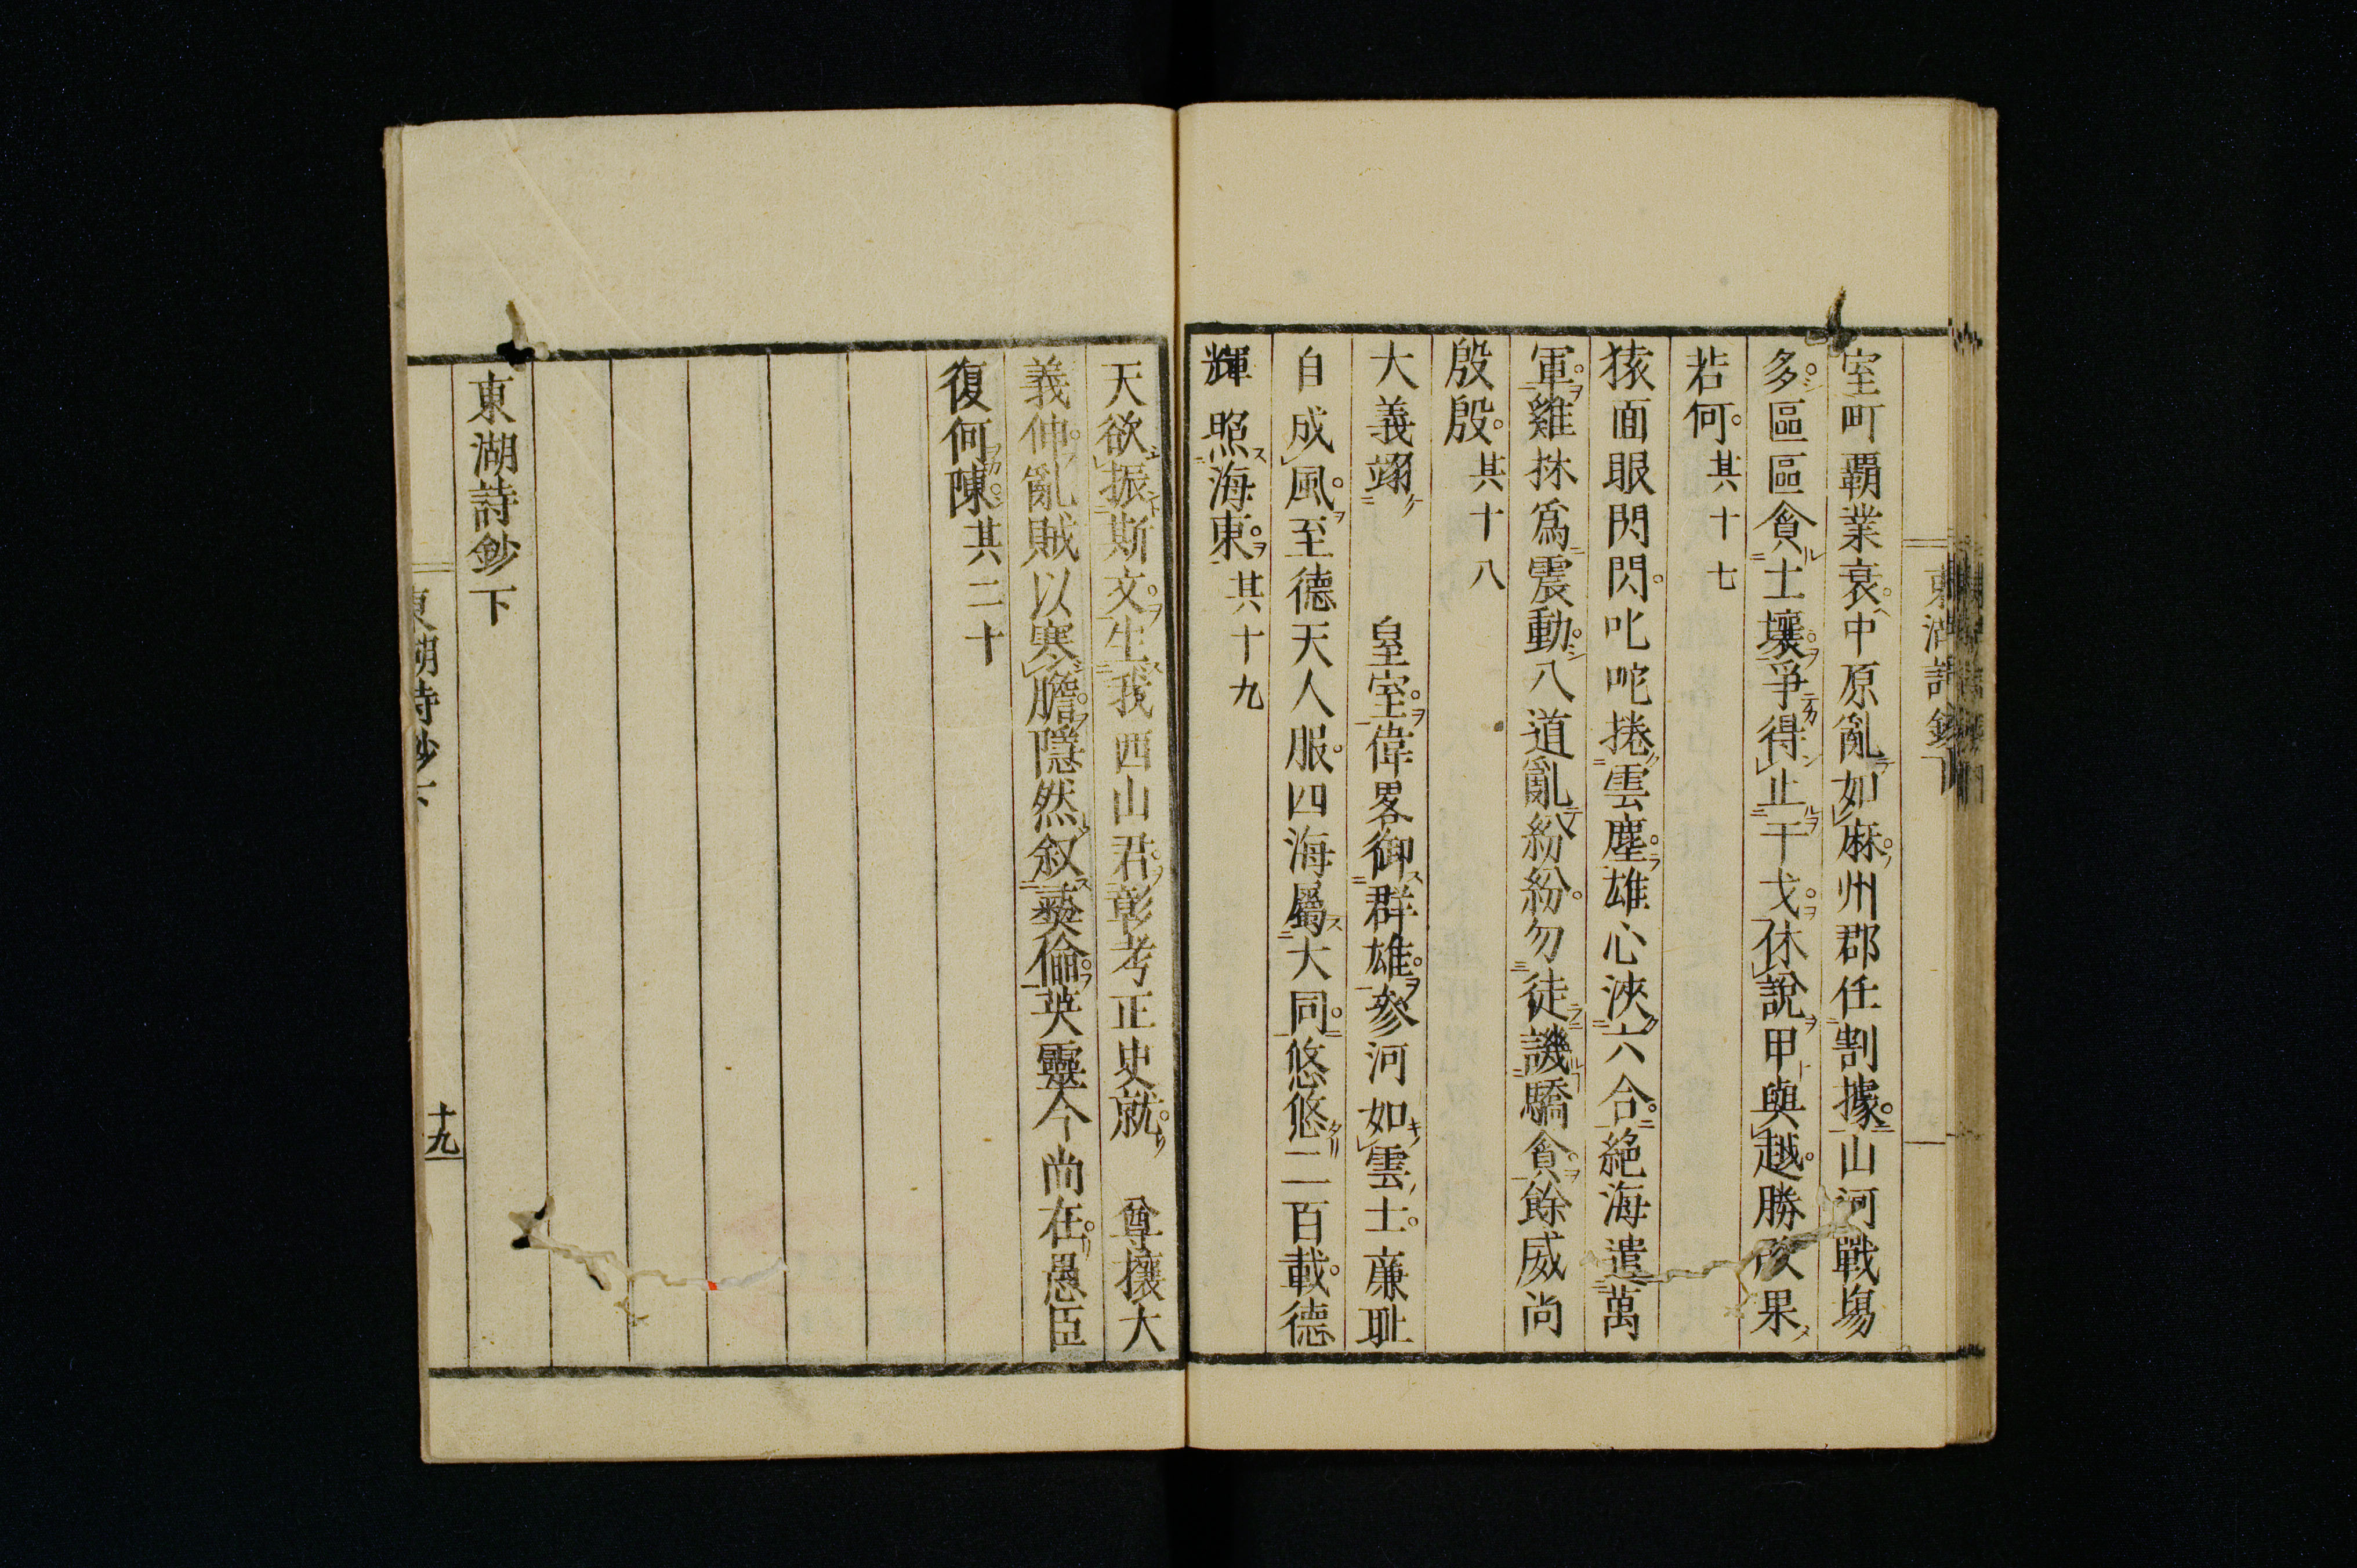 室町覇業衰中原亂如麻州郡任割據山河戰塲
多區區貪土壤爭得止干戈休說甲與越勝敗果
若何其十七
猿面眼閃閃叱咤捲雲塵雄心浹六合絶海遣萬
軍雞林爲震動八道亂紛紛勿徒譏驕貪餘威尚
殷殷其十八
大義翊　皇室偉畧御群雄參河如雲士廉耻
自成風至德天人服四海屬大同悠悠二百載德
輝照海東其十九
天欲振斯文生我西山君彰考正史就　尊攘大
義伸亂賊以寒膽隱然叙彜倫英靈今尚在愚臣
復何陳其二十
東湖詩鈔下
十九